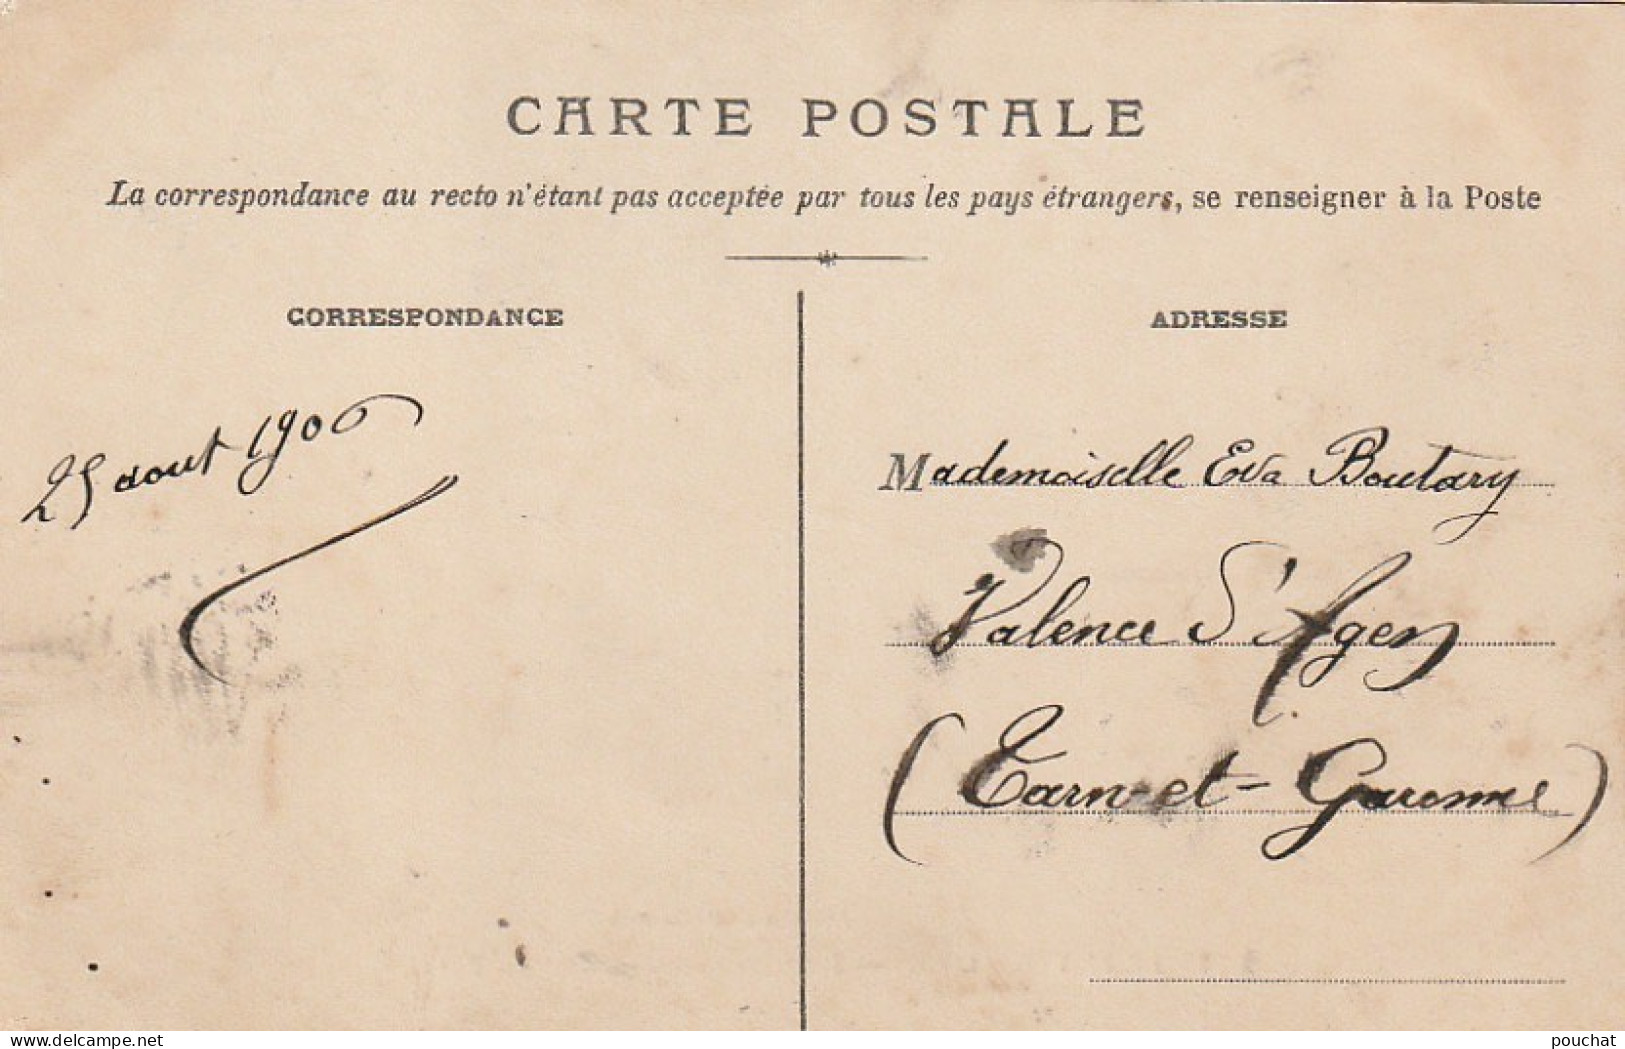 CARTE POSTALE
La correspondance au recto n'étant pas acceptée par tous les pays étrangers, se renseigner à la Poste
CORRESPONDANCE
25 aout 1906
ADRESSE
Mademoiselle Eva Boutary
Valence d'Agen
(Tarn-et-Garonne)
www.delcampe.net
pouchat